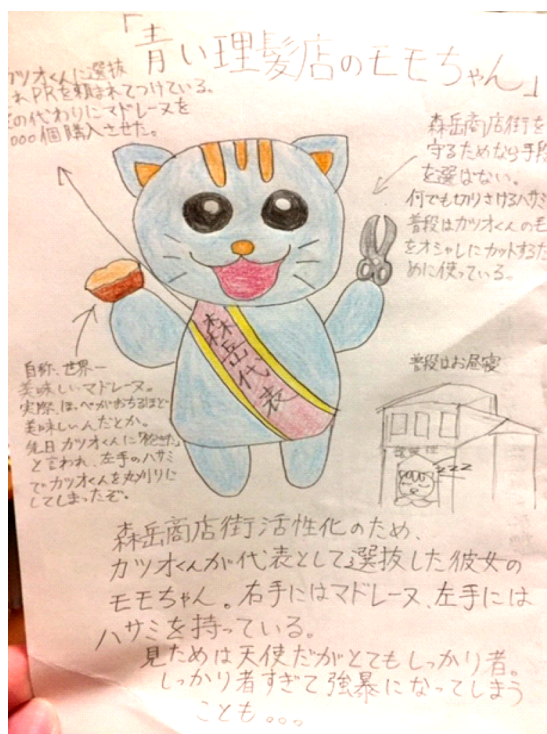 「青い理髪店のモモちゃん」
カツオくんに選抜
され PRを頼まれてつけている。
その代わりにマドレーヌを
000個購入させた。
森岳商店街を
守るためなら手段
を選ばない。
何でも切りさけるハサミ
普段はカツオくんの毛
をオシャレにカットするた
めに使っている。
森岳代表
自称、世界一
美味しいマドレーヌ。
実際、ほっぺがおちるほど
美味しいんだとか。
先日カツオくんに「飽きた」
と言われ、左手のハサミ
でカツオくんを丸刈りに
してしまったぞ。
普段はお昼寝
zzz
森岳商店街活性化のため、
カツオくんが代表として選抜した彼女の
モモちゃん。右手にはマドレーヌ、左手には
ハサミを持っている。
見ためは天使だがとてもしっかり者。
しっかり者すぎて強暴になってしまう
ことも。。。